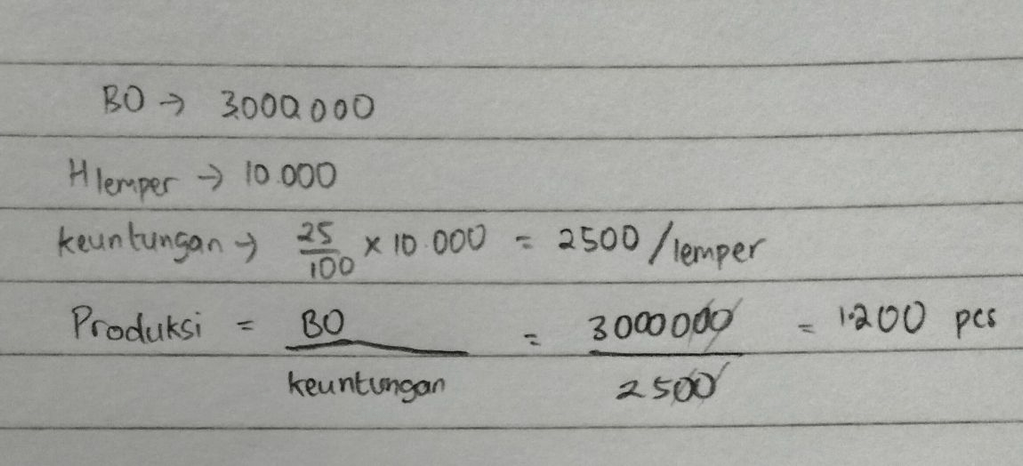 BO → 3.000.000
H lemper → 10.000
keuntungan → 25/100 x 10.000 = 2500/lemper
Produksi = BO/keuntungan = 3000000/2500 = 1.200 pcs